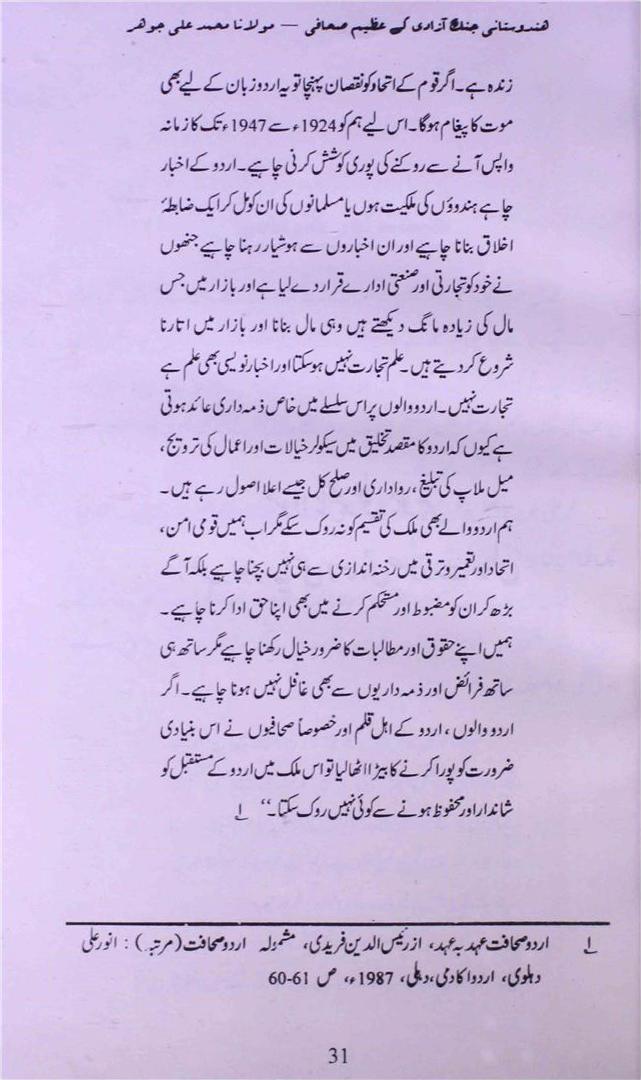 هندوستانی جنگ آزادی کے عظیم صحافی — مولانا محمد علی جوهر
زندہ ہے۔ اگر قوم کے اتحاد کو نقصان پہنچا تو یہ اردو زبان کے لیے بھی
موت کا پیغام ہوگا۔ اس لیے ہم کو 1924ء سے 1947ء تک کا زمانہ
واپس آنے سے روکنے کی پوری کوشش کرنی چاہیے۔ اردو کے اخبار
چاہے ہندوؤں کی ملکیت ہوں یا مسلمانوں کی ان کو مل کر ایک ضابطۂ
اخلاق بنانا چاہیے اور ان اخباروں سے ہوشیار رہنا چاہیے جنھوں
نے خود کو تجارتی اور صنعتی ادارے قرار دے لیا ہے اور بازار میں جس
مال کی زیادہ مانگ دیکھتے ہیں وہی مال بنانا اور بازار میں اتارنا
شروع کر دیتے ہیں۔ علم تجارت نہیں ہوسکتا اور اخبار نویسی بھی علم ہے
تجارت نہیں۔ اردو والوں پر اس سلسلے میں خاص ذمہ داری عائد ہوتی
ہے کیوں کہ اردو کا مقصد تخلیق میں سیکولر خیالات اور اعمال کی ترویج،
میل ملاپ کی تبلیغ، رواداری اور صلح کل جیسے اعلا اصول رہے ہیں۔
ہم اردو والے بھی ملک کی تقسیم کو نہ روک سکے مگر اب ہمیں قومی امن،
اتحاد اور تعمیر و ترقی میں رخنہ اندازی سے ہی نہیں بچنا چاہیے بلکہ آگے
بڑھ کر ان کو مضبوط اور مستحکم کرنے میں بھی اپنا حق ادا کرنا چاہیے۔
ہمیں اپنے حقوق اور مطالبات کا ضرور خیال رکھنا چاہیے مگر ساتھ ہی
ساتھ فرائض اور ذمہ داریوں سے بھی غافل نہیں ہونا چاہیے۔ اگر
اردو والوں، اردو کے اہل قلم اور خصوصاً صحافیوں نے اس بنیادی
ضرورت کو پورا کرنے کا بیڑا اٹھا لیا تو اس ملک میں اردو کے مستقبل کو
شاندار اور محفوظ ہونے سے کوئی نہیں روک سکتا۔‘‘ ۱؎
۱؎ اردو صحافت عہد بہ عہد، از رئیس الدین فریدی، مشمولہ اردو صحافت (مرتبہ): انور علی
دہلوی، اردو اکادمی، دہلی، 1987ء، ص 61-60
31